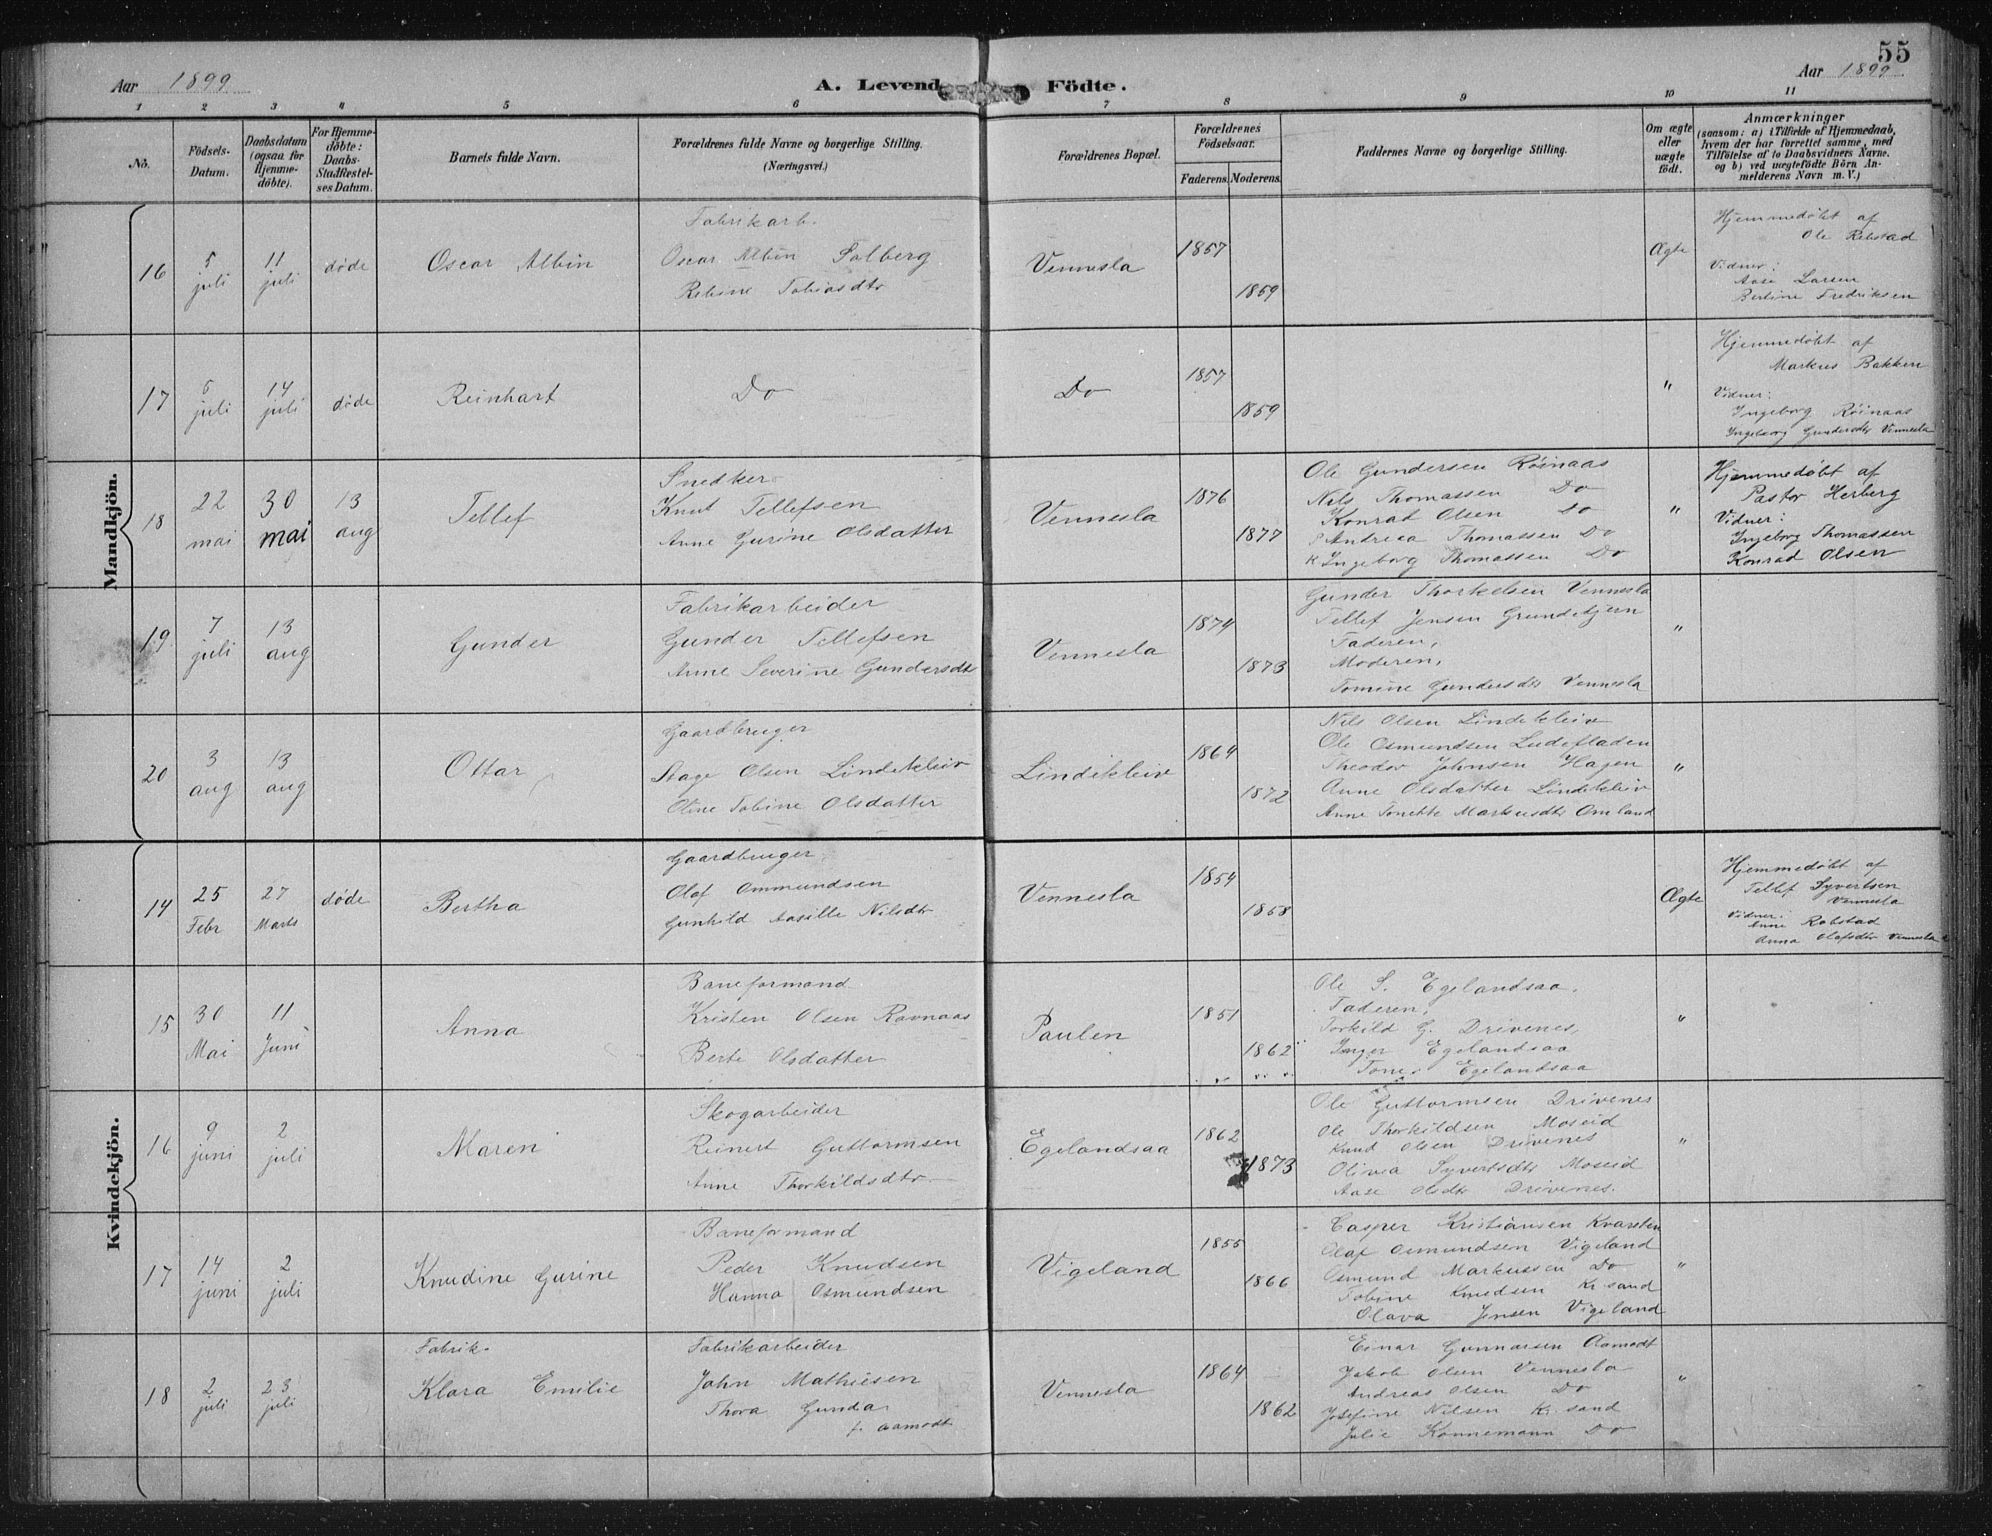 55
Aar 1899
A. Levende Födte.
Aar 1899
1 2 3 4 5 6 7 8 9 10 11
No.
Födsels-Datum.
Daabsdatum (ogsaa for Hjemme-döbte).
For Hjemme-döbte: Daabs-Stadfæstel-ses Datum.
Barnets fulde Navn.
Forældrenes fulde Navne og borgerlige Stilling. (Næringsvei.)
Forældrenes Bopæl.
Forældrenes Födselsaar.
Faderens. Moderens.
Faddernes Navne og borgerlige Stilling.
Om ægte eller uægte födt.
Anmærkninger
(saasom: a) i Tilfælde af Hjemmedaab,
hvem der har forrettet samme, med
Tilföielse af to Daabsvidners Navne.
og b) ved uægtefödte Börn An-
melderens Navn m. V.)
Mandkjön.
16 5 juli 11 juli døde Oscar Albin
Fabrikarb.
Oscar Albin Solberg
Rebine Tobiasdtr
Vennesla 1857 1859 Ægte
Hjemmedøbt af
Ole Rebstad
Vidner:
Aase Larsen
Bertine Fredriksen
17 5 juli 14 juli døde Reinhart
Do
Do 1857 1859 "
Hjemmedøbt af
Markus Bakken
Vidner:
Ingeborg Röinaas
Ingeborg Gundersdtr Vennesla
18 22 mai 30 mai 13 aug Tellef
Snedker
Knut Tellefsen
Anne Gurine Olsdatter
Vennesla 1876 1877
Ole Gundersen Röinaas
Nils Thomassen Do
Konrad Olsen Do
Andrea Thomassen Do
Ingeborg Thomassen Do
"
Hjemmedøbt af
Pastor Herberg
Vidner:
Ingeborg Thomassen
Konrad Olsen
19 7 juli 13 aug Gunder
Fabrikarbeider
Gunder Tellefsen
Anne Severine Gundersdtr
Vennesla 1874 1873
Gunder Thorkelsen Vennesla
Tellef Jensen Grundetjern
Faderen,
Moderen,
Tomine Gundersdtr Vennesla
"
20 3 aug 13 aug Ottar
Gaardbruger
Stage Olsen Lindekleiv
Oline Tobine Olsdatter
Lindekleiv 1864 1872
Nils Olsen Lindekleiv
Ole Osmundsen Ludefladen
Theodor Johnsen Hagen
Anne Olsdatter Lindekleiv
Anne Tonette Markusdtr Omland
"
Kvindekjön.
14 25 Febr 27 Marts døde Bertha
Gaardbruger
Olaf Ommundsen
Gunhild Aasille Nilsdtr
Vennesla 1854 1858 Ægte
Hjemmedøbt af
Tellef Syvertsen
Vennesla
Vidner:
Anne Robstad
Anna Olafsdtr Vennesla
15 30 Mai 11 Juni Anna
Baneformand
Kristen Olsen Ravnaas
Berte Olsdatter
Paulen 1851 1862
Ole S. Egelandsaa.
Faderen,
Torkild G. Drivenes,
Inger Egelandsaa
Tone Egelandsaa
"
16 9 juni 2 juli Maren
Skogarbeider
Reinert Guttormsen
Anne Thorkildsdtr
Egelandsaa 1862 1873
Ole Guttormsen Drivenes
Ole Thorkildsen Moseid
Knud Olsen Drivenes
Olivia Syvertsdtr Moseid
Aase Olsdtr Drivenes.
"
17 14 juni 2 juli Knudine Gurine
Baneformand
Peder Knudsen
Hanna Osmundsen
Vigeland 1855 1866
Casper Kristiansen Kvarsten
Olaf Osmundsen Vigeland
Osmund Markussen Do
Tobine Knudsen Kr.sand
Olava Jensen Vigeland
"
18 2 juli 23 juli Fabrik.
Klara Emilie
Fabrikarbeider
John Mathiesen
Thora Gunda
f. Aamodt
Vennesla 1864 1862
Einar Gunnarsen Aamodt
Jakob Olsen Vennesla
Andreas Olsen Do
Josefine Nilsen Kr.sand
Julie Konnemann Do
"